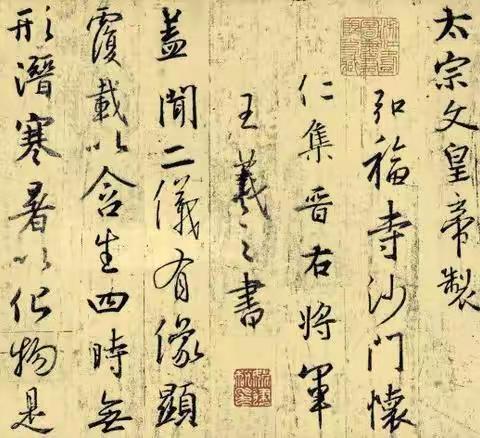 太宗文皇帝製
弘福寺沙門懷
仁集晋右將軍
王羲之書
蓋聞二儀有像顯
覆載以含生四時無
形潛寒暑以化物是